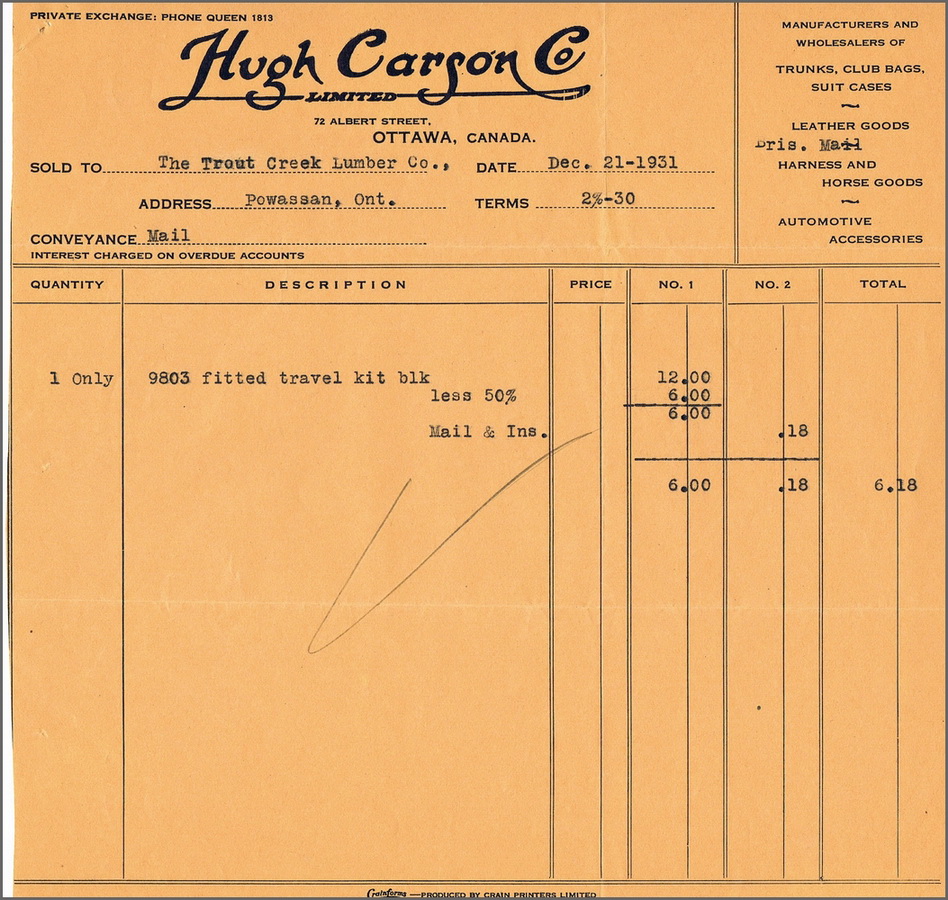 PRIVATE EXCHANGE: PHONE QUEEN 1813
Hugh Carson Co
LIMITED
72 ALBERT STREET,
OTTAWA, CANADA.
SOLD TO The Trout Creek Lumber Co., DATE Dec. 21-1931
ADDRESS Powassan, Ont. TERMS 2%-30
CONVEYANCE Mail
INTEREST CHARGED ON OVERDUE ACCOUNTS
MANUFACTURERS AND
WHOLESALERS OF
TRUNKS, CLUB BAGS,
SUIT CASES
LEATHER GOODS
Pris. Mail
HARNESS AND
HORSE GOODS
AUTOMOTIVE
ACCESSORIES
QUANTITY DESCRIPTION PRICE NO. 1 NO. 2 TOTAL
1 Only 9803 fitted travel kit blk 12.00
less 50% 6.00
6.00
Mail & Ins. .18
6.00 .18 6.18
Crainforms —PRODUCED BY CRAIN PRINTERS LIMITED